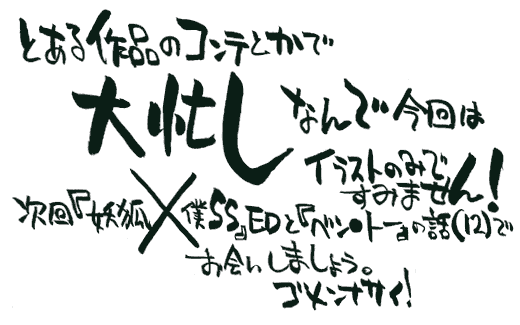 とある作品のコンテとかで
大忙しなんで今回は
イラストのみで
すみません!
次回『妖狐×僕SS』EDと『ベン・トー』の話(12)で
お会いしましょう。
ゴメンナサイ!